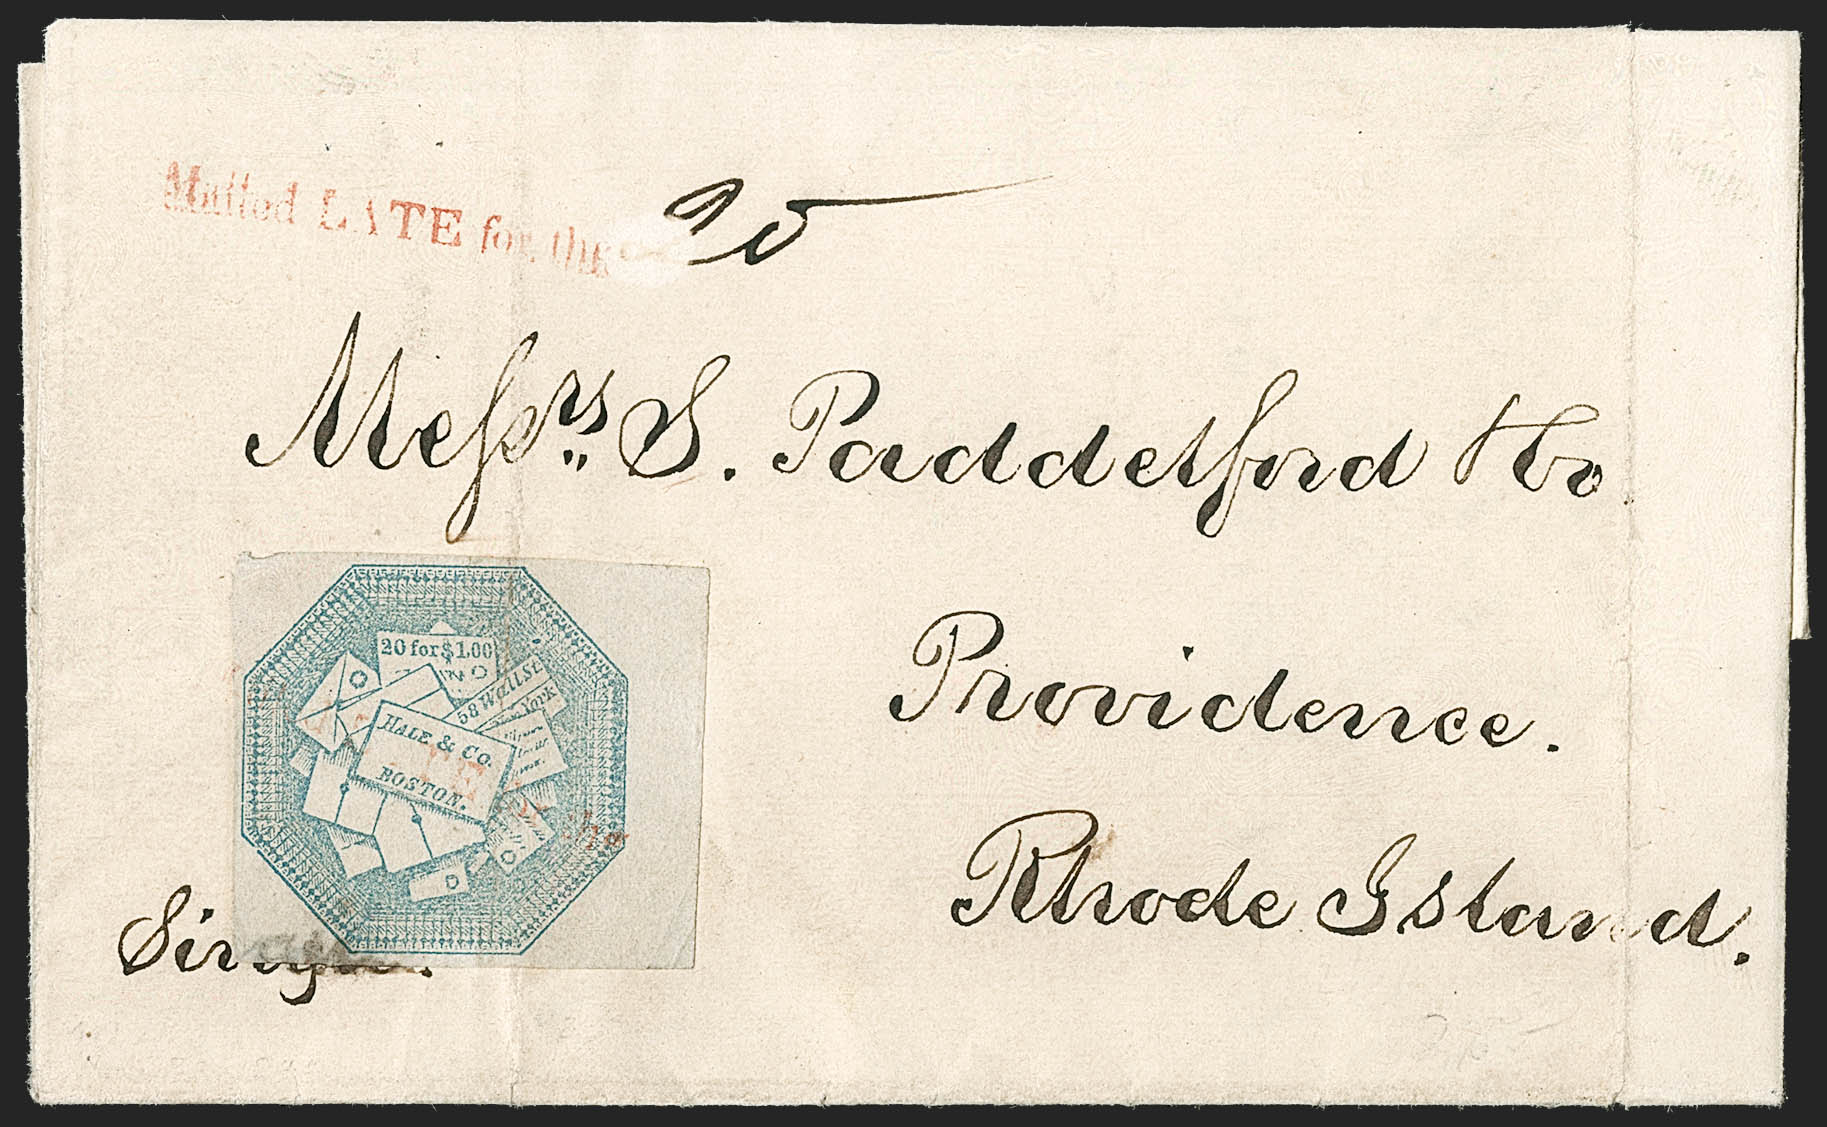 Mailed LATE for the
Messrs. S. Paddelford & Co
Providence.
Rhode Island.
20 for $1.00
58 Wall St
New York
HALE & CO.
BOSTON.
Single.